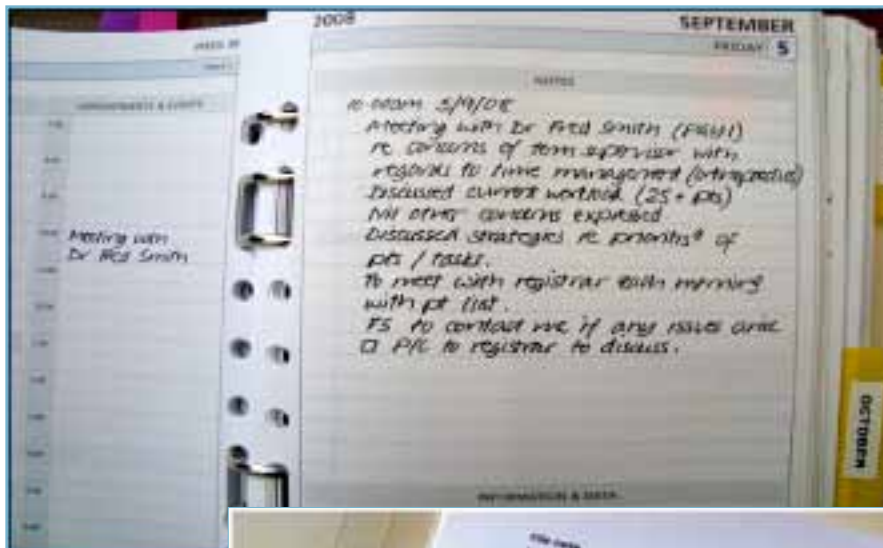 2008
SEPTEMBER
FRIDAY 5
NOTES
APPOINTMENTS & EVENTS
Meeting with
Dr Fred Smith
10.00am 5/9/08
Meeting with Dr Fred Smith (PGY1)
re concerns of term supervisor with
regards to time management (orthopaedics)
Discussed current workload (25+ pts)
Nil other concerns expressed
Discussed strategies re prioritisn of
pts / tasks.
To meet with registrar each morning
with pt list.
FS to contact me if any issues arise
□ P/C to registrar to discuss.
INFORMATION & DATA
OCTOBER
File note